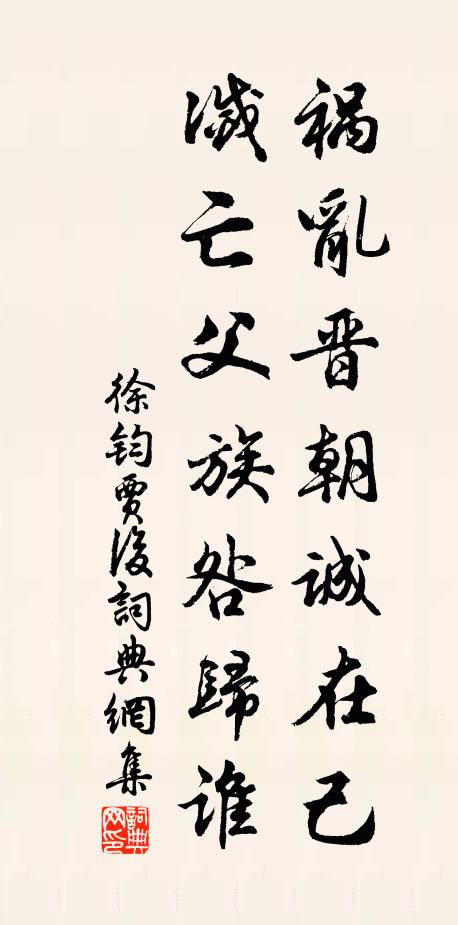 禍亂晋朝誠在己
滅亡父族咎歸誰
徐鈞賈後詞典網集
詞典網印